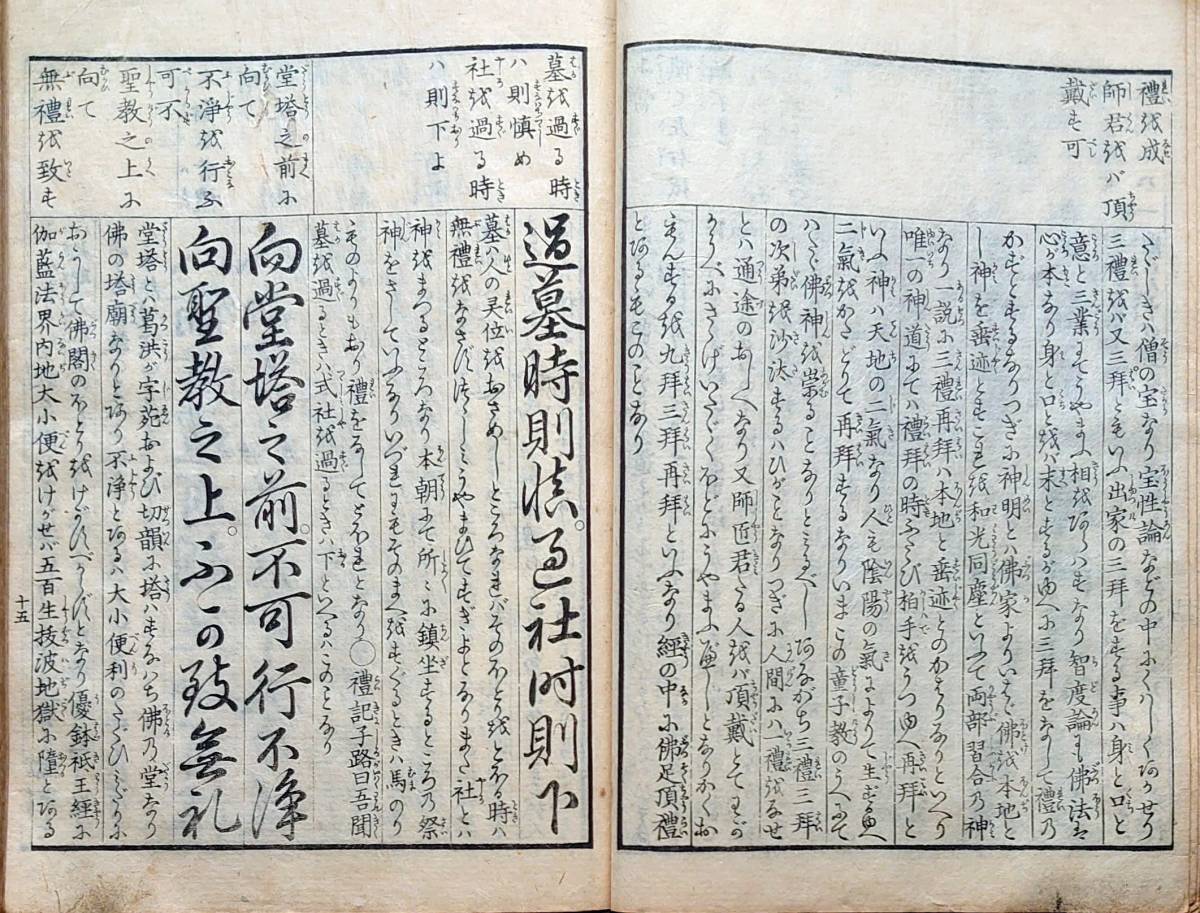 禮を成
師君をバ頂
戴す可
たゞしきハ僧の宝なり宝性論などの中にくハしくあかせり
三禮をバ又三拜ともいふ出家の三拜をする事ハ身と口と
意と三業にてうやまふ相をあらハすなり智度論にも佛法は
心が本なり身と口とをバ末とするがゆへに三拜をなして禮の
かずとするなりつぎに神明とハ佛家よりいへば佛を本地と
し神を垂迹とすこれを和光同塵といふて両部習合の神
なり一説に三禮再拜ハ本地と垂迹とのかはりなりといへり
唯一の神道にてハ禮拜の時ふたゝび拍手をうつゆへ再拜と
いふ神ハ天地の二氣なり人も陰陽の氣によりて生ずるゆへ
二氣をかたどりて再拜するなりいまこの童子教のうへにて
ハたゞ佛神を崇ることなりとしるべしあながち三禮三拜
の次第を沙汰するハひがことなりつぎに人間にハ一禮をなせ
とハ通途のおしへなり又師匠君たる人をバ頂戴とてわが
かうべにさゝげいたゞくほどにうやまふべしとなりかくお
もんずるを九拜三拜再拜といふなり經の中に佛足頂禮
とあるもこのことなり
墓を過る時
ハ則慎め
社を過る時
ハ則下よ
堂塔之前に
向て
不淨を行ふ
可不
聖教之上に
向て
無禮を致す
過墓時則慎。過社时則下
墓ハ人の灵位をおさめしところなればそのほとりをとほる時ハ
無禮をなさずつゝしミうやまひてすぎよとなりまた社とハ
神をまつるところなり本朝にて所〻に鎮坐するところの祭
神をさしていふなりいづれにてもそのまへをすぐるときハ馬のり
ものよりもおり禮をなしてとほれとなり○禮記子路曰吾聞
墓を過るときハ式社を過るときハ下といへるハこのことなり
向堂塔之前。不可行不淨
向聖教之上。不可致無礼
堂塔とハ葛洪が字苑および切韻に塔ハすなハち佛の堂なり
佛の塔廟なりとあり不淨とあるハ大小便利のたぐひミだりに
おかして佛閣のほとりをけがすべからずとなり優鉢祇王經に
伽藍法界内地大小便をけがせバ五百生技波地獄に墮とある
十五